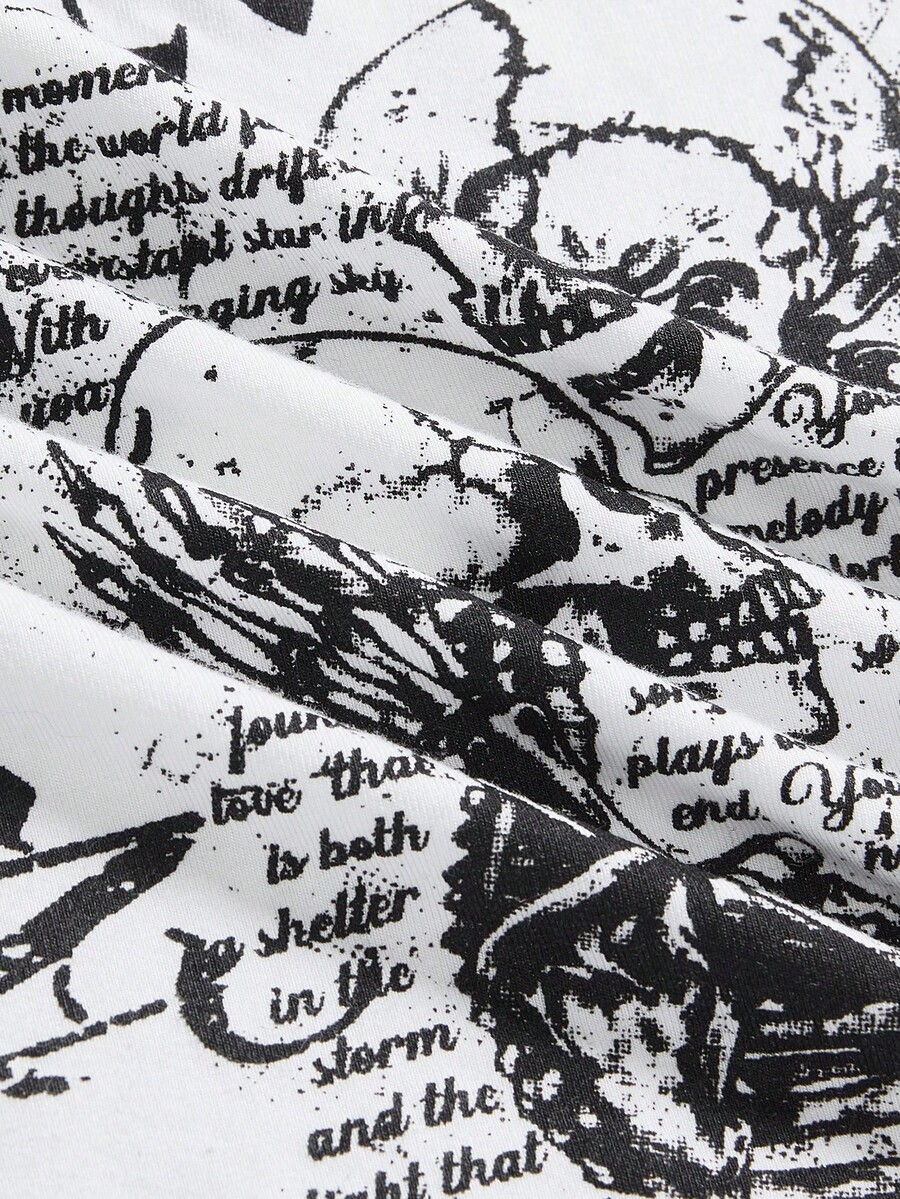 momen
the world
thoughts drift
star into
ging sky
With
you
You
presence
melody
song
plays
end. You
foun
love that
is both
a shelter
in the
storm
and the
that